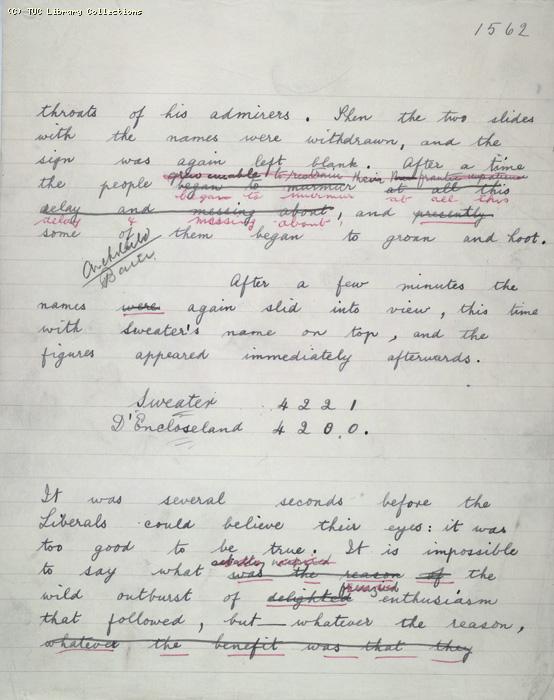 (c) TUC Library Collections
1562
throats of his admirers. Then the two slides
with the names were withdrawn, and the
sign was again left blank. After a time
grew unable to restrain their
the people began to murmur at all this
began to murmur at all this
delay and messing about, and presently
delay & messing about
some of them began to groan and hoot.
After a few minutes the
names were again slid into view, this time
with Sweater's name on top, and the
figures appeared immediately afterwards.
Sweater 4221
D'Encloseland 4200.
It was several seconds before the
Liberals could believe their eyes: it was
too good to be true. It is impossible
to say what was the reason of the
frenzied
wild outburst of delighted enthusiasm
that followed, but—whatever the reason,
whatever the benefit was that they